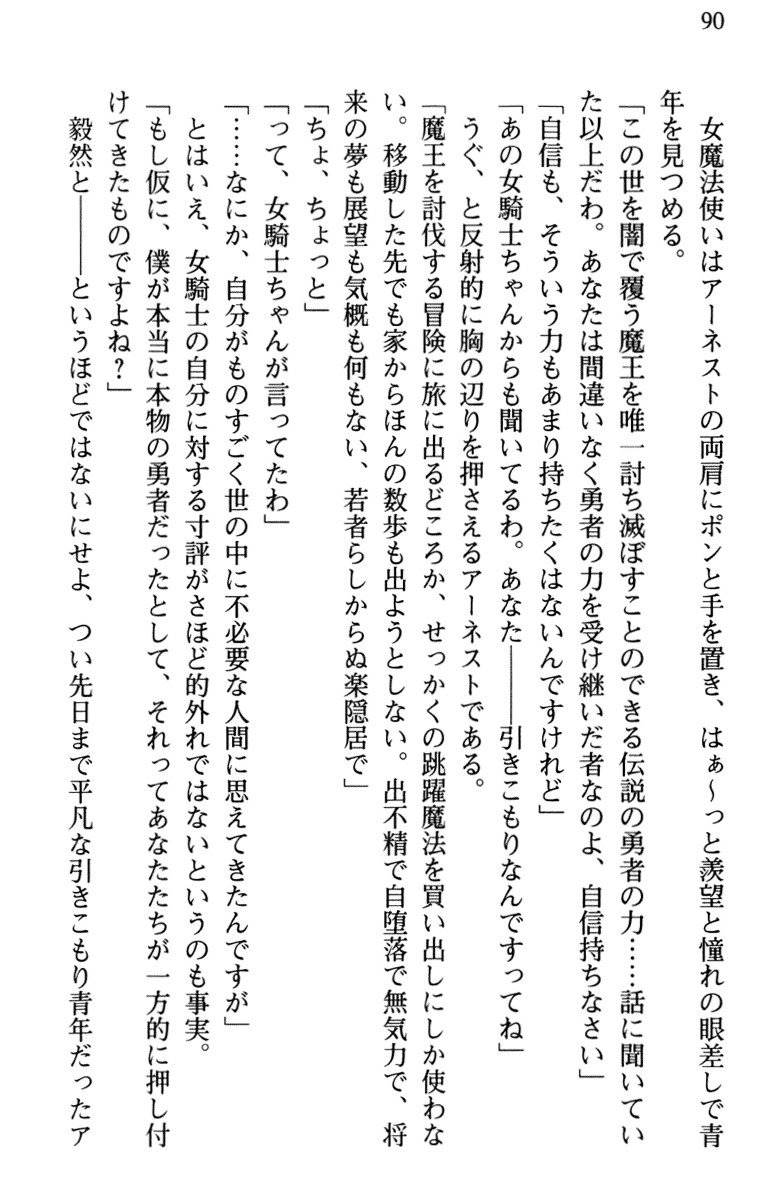 90
女魔法使いはアーネストの両肩にポンと手を置き、はぁ～っと羨望と憧れの眼差しで青
年を見つめる。
「この世を闇で覆う魔王を唯一討ち滅ぼすことのできる伝説の勇者の力……話に聞いてい
た以上だわ。あなたは間違いなく勇者の力を受け継いだ者なのよ、自信持ちなさい」
「自信も、そういう力もあまり持ちたくはないんですけれど」
「あの女騎士ちゃんからも聞いてるわ。あなた――引きこもりなんですってね」
うぐ、と反射的に胸の辺りを押さえるアーネストである。
「魔王を討伐する冒険に旅に出るどころか、せっかくの跳躍魔法を買い出しにしか使わな
い。移動した先でも家からほんの数歩も出ようとしない。出不精で自堕落で無気力で、将
来の夢も展望も気概も何もない、若者らしからぬ楽隠居で」
「ちょ、ちょっと」
「って、女騎士ちゃんが言ってたわ」
「……なにか、自分がものすごく世の中に不必要な人間に思えてきたんですが」
とはいえ、女騎士の自分に対する寸評がさほど的外れではないというのも事実。
「もし仮に、僕が本当に本物の勇者だったとして、それってあなたたちが一方的に押し付
けてきたものですよね？」
毅然と――というほどではないにせよ、つい先日まで平凡な引きこもり青年だったア